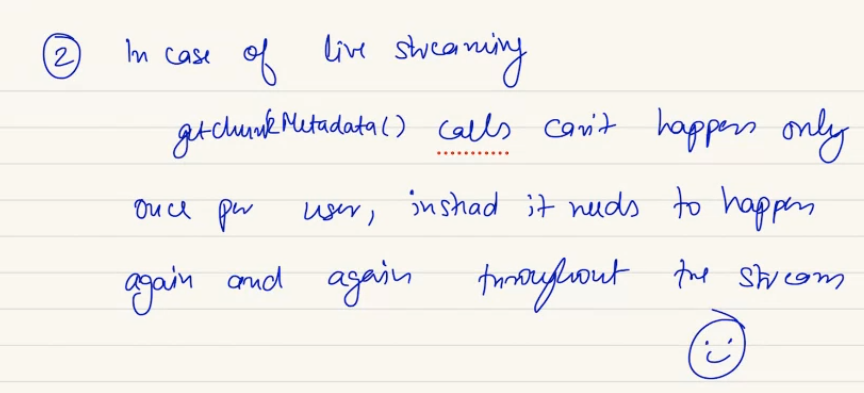 2 In case of live streaming
getchunkMetadata() calls can't happen only
once per user, instead it needs to happen
again and again throughout the stream